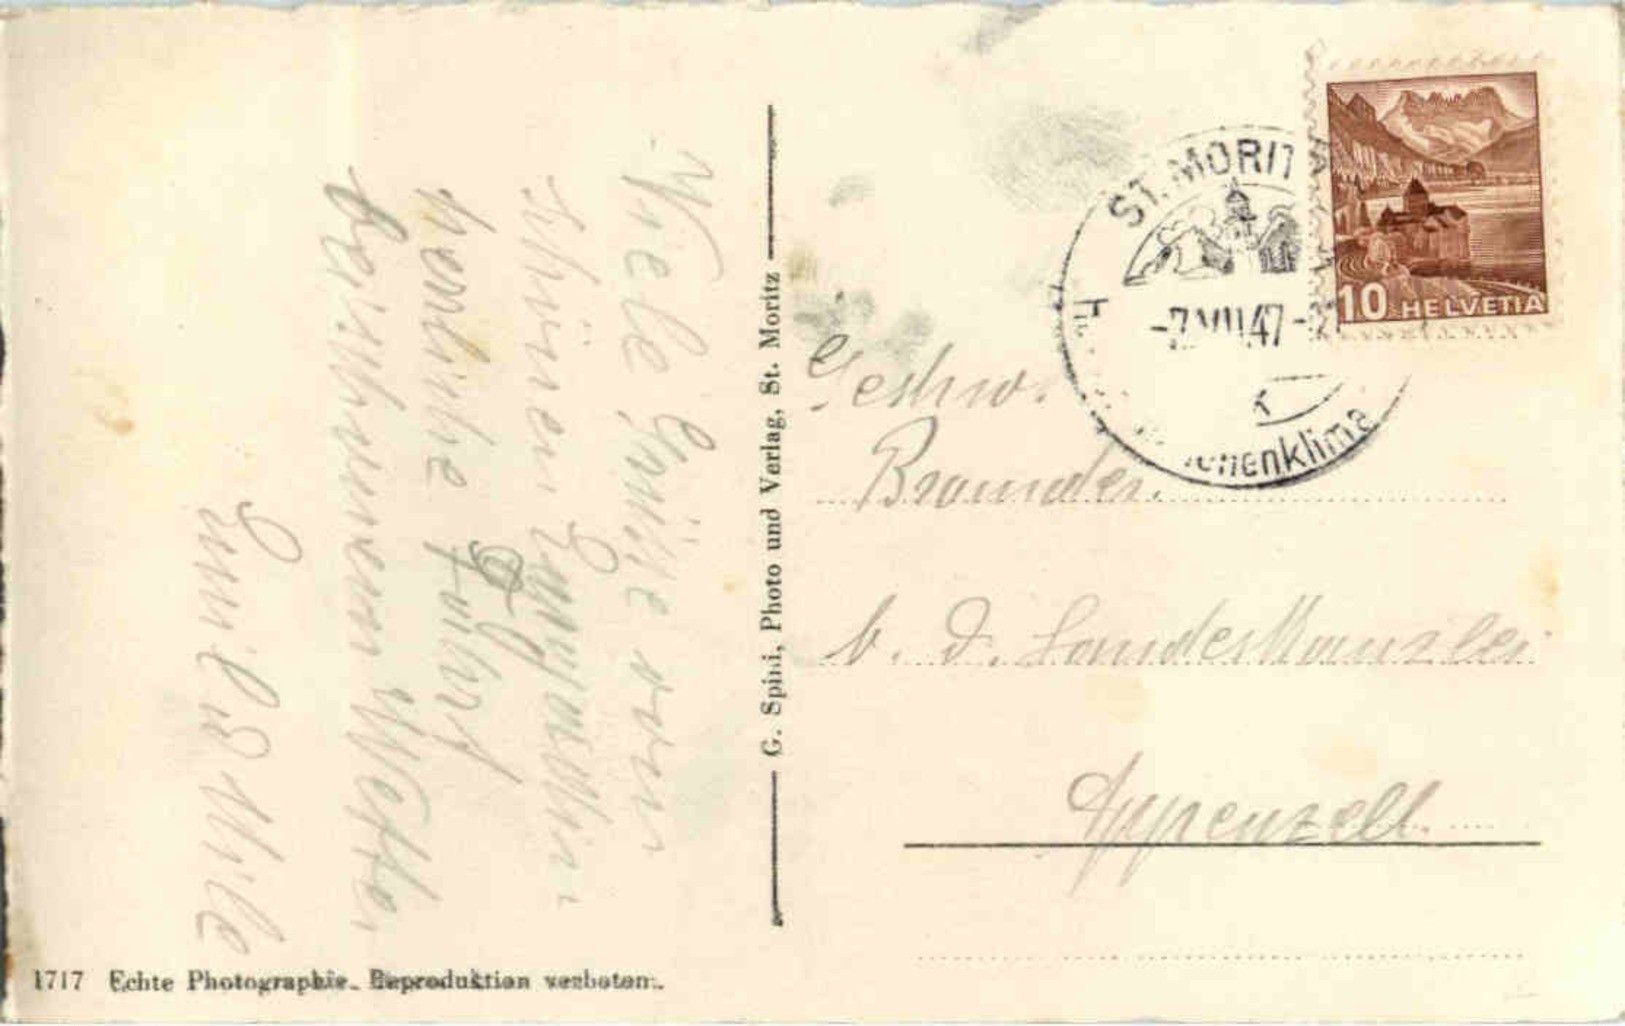 Viele Grüße von
schönen Engadin
herrliche Fahrt
Wetter
Emil
G. Spini, Photo und Verlag, St. Moritz
ST. MORITZ
-7.VIII.47-
HELVETIA
10
Geschw.
Brander.
b. d. Landeskanzlei
Appenzell.
1717 Echte Photographie. Reproduktion verboten.